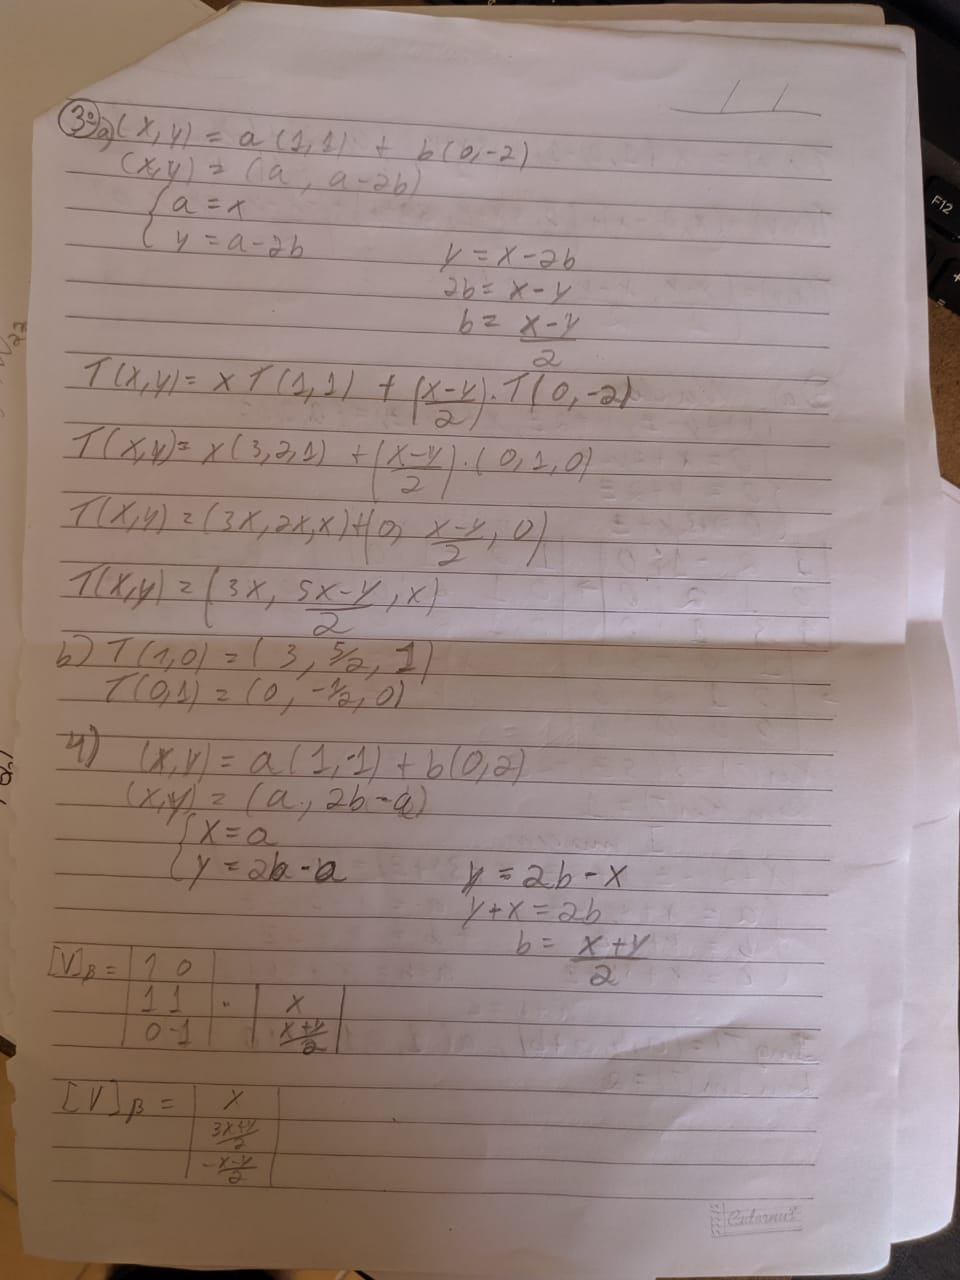 3º a) (x,y) = a(1,1) + b(0,-2)
(x,y) = (a, a-2b)
{ a = x
{ y = a-2b
y = x-2b
2b = x-y
b = x-y/2
T(x,y) = x T(1,1) + (x-y/2) . T(0,-2)
T(x,y) = x(3,2,1) + (x-y/2) . (0,1,0)
T(x,y) = (3x,2x,x)+(0, x-y/2, 0)
T(x,y) = (3x, 5x-y/2, x)
b) T(1,0) = (3, 5/2, 1)
T(0,1) = (0, -1/2, 0)
4) (x,y) = a(1,-1) + b(0,2)
(x,y) = (a, 2b-a)
{ x = a
{ y = 2b-a
y = 2b-x
y+x = 2b
b = x+y/2
[V]β = | 1 0 |
| 1 1 | . | x |
| 0 -1 | | x+y/2 |
[V]β = | x |
| 3x+y/2 |
| -x-y/2 |
Caderno
F12
+